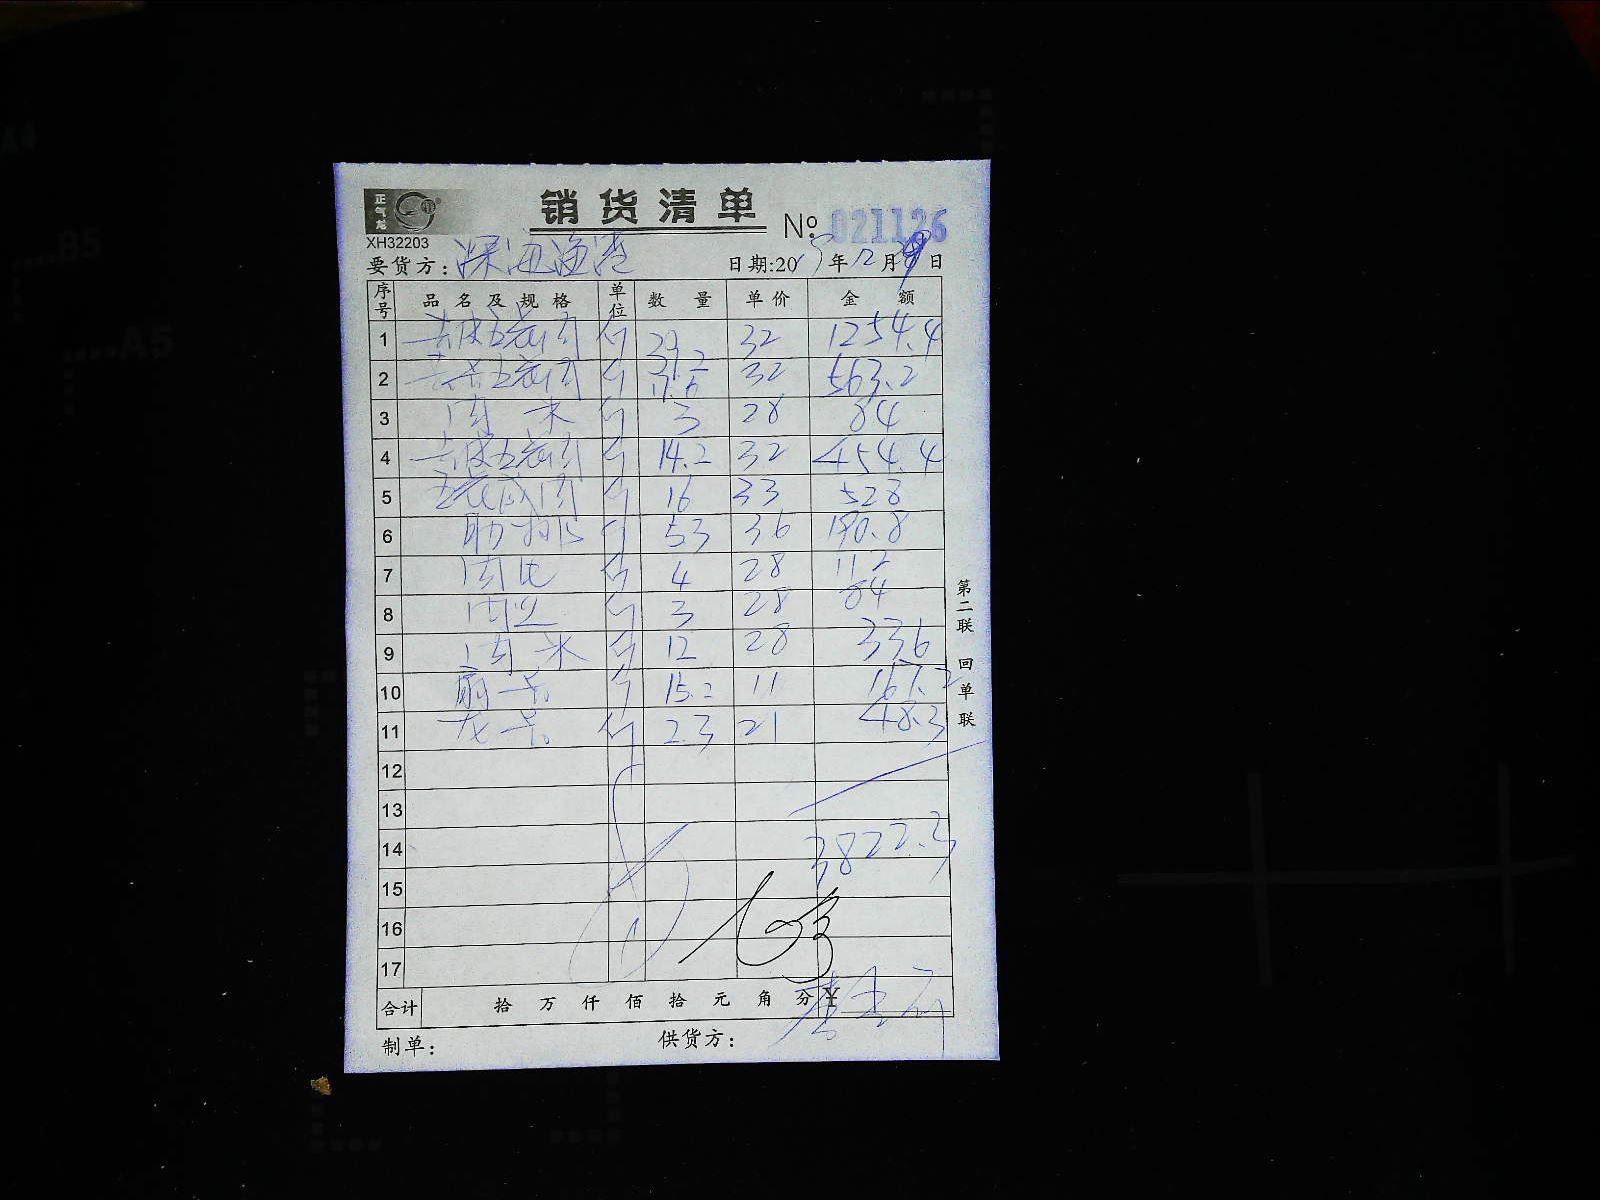 正气龙
销货清单
XH32203
No. 021126
要货方: 深海渔港
日期:20 年12月9日
序号 品名及规格 单位 数量 单价 金额
1 去皮五花肉 斤 39.2 32 1254.4
2 五花肉 斤 17.6 32 563.2
3 肉 斤 3 28 84
4 去皮五花肉 斤 14.2 32 454.4
5 五花肉 斤 16 33 528
6 肋排 斤 53 36 190.8
7 肉 斤 4 28 112
8 肉 斤 3 28 84
9 肉 斤 12 28 336
10 斤 15.2 11 167.2
11 斤 2.3 21 48.3
12
13
14 3822.3
15
16
17
合计 拾 万 仟 佰 拾 元 角 分 ¥
制单:
供货方:
第二联 回单联
A4
B5
A5